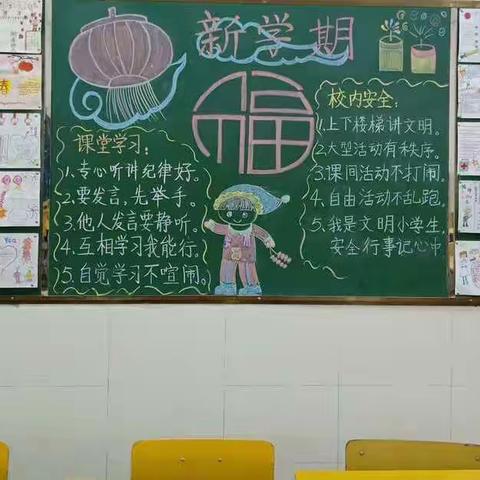 新学期
福
课堂学习：
1、专心听讲纪律好。
2、要发言，先举手。
3、他人发言要静听。
4、互相学习我能行。
5、自觉学习不喧闹。
校内安全：
1.上下楼梯讲文明。
2.大型活动有秩序。
3.课间活动不打闹。
4.自由活动不乱跑。
5.我是文明小学生，
安全行事记心中